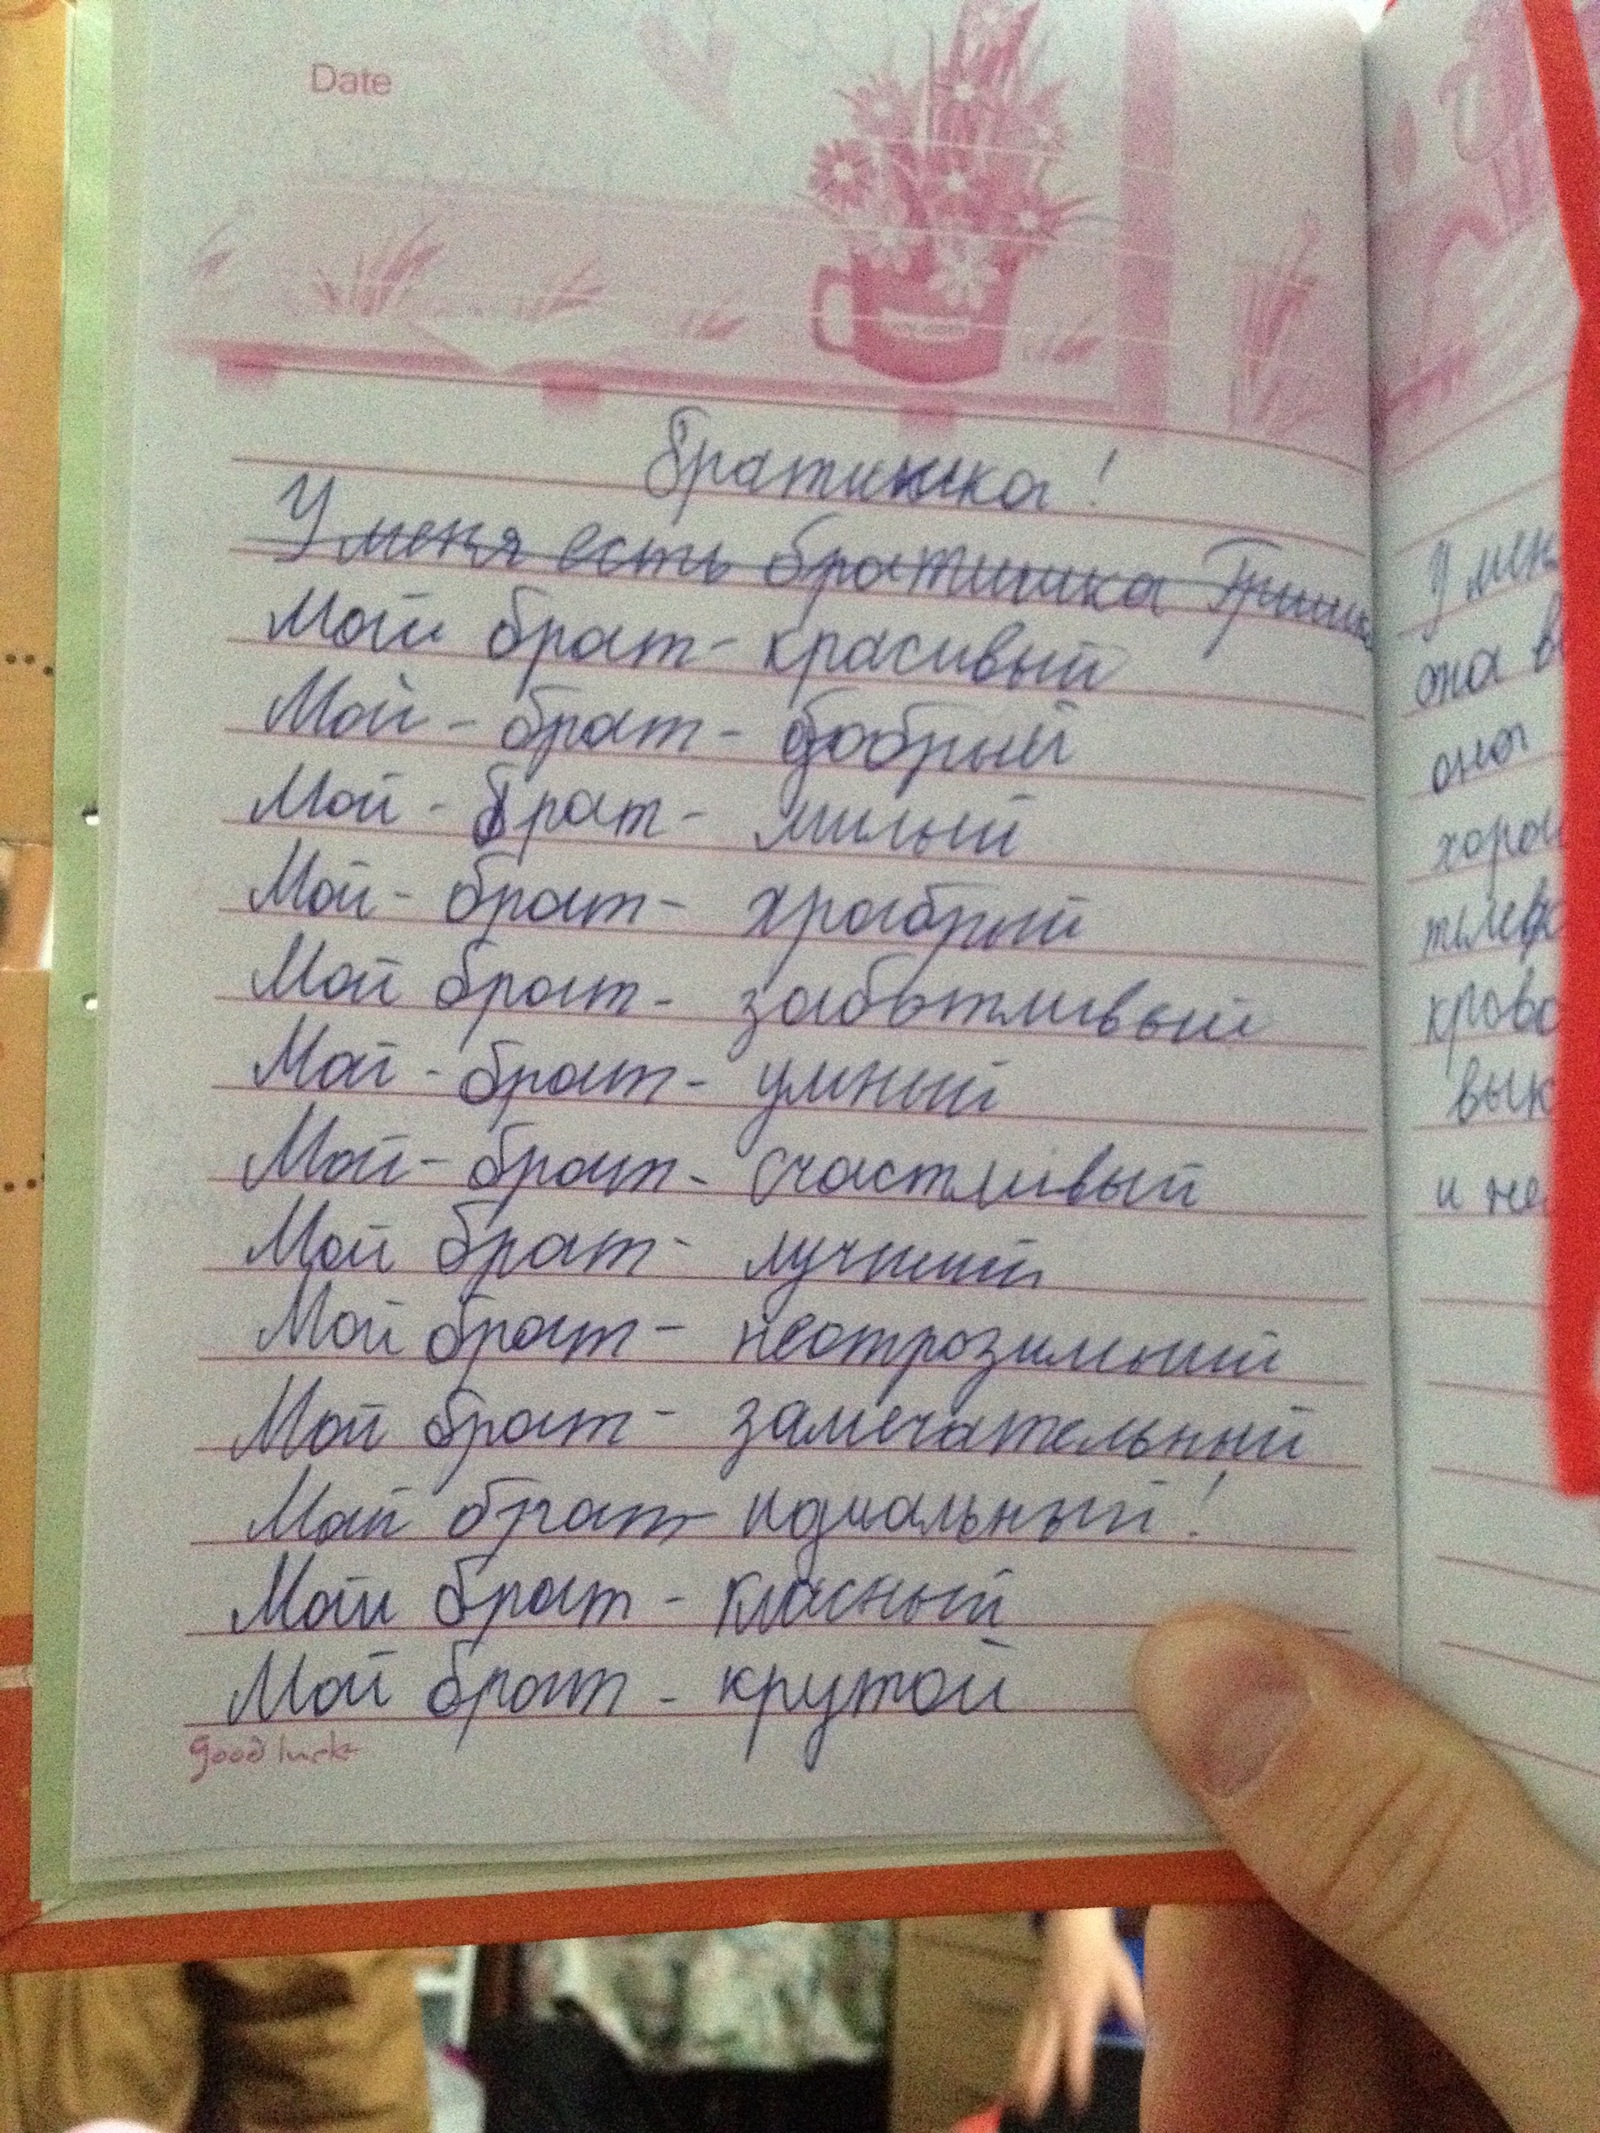 Date
Братишка!
У меня есть братишка Гришка
Мой брат - красивый
Мой - брат - добрый
Мой - брат - милый
Мой - брат - храбрый
Мой брат - забытливый
Мой - брат - умный
Мой - брат - счастливый
Мой брат - лучший
Мой брат - неотрозимый
Мой брат - замечательный
Мой брат - идиальный!
Мой брат - класный
Мой брат - крутой
Good luck
У мен
она в
она
хорош
телефо
крова
вык
и не